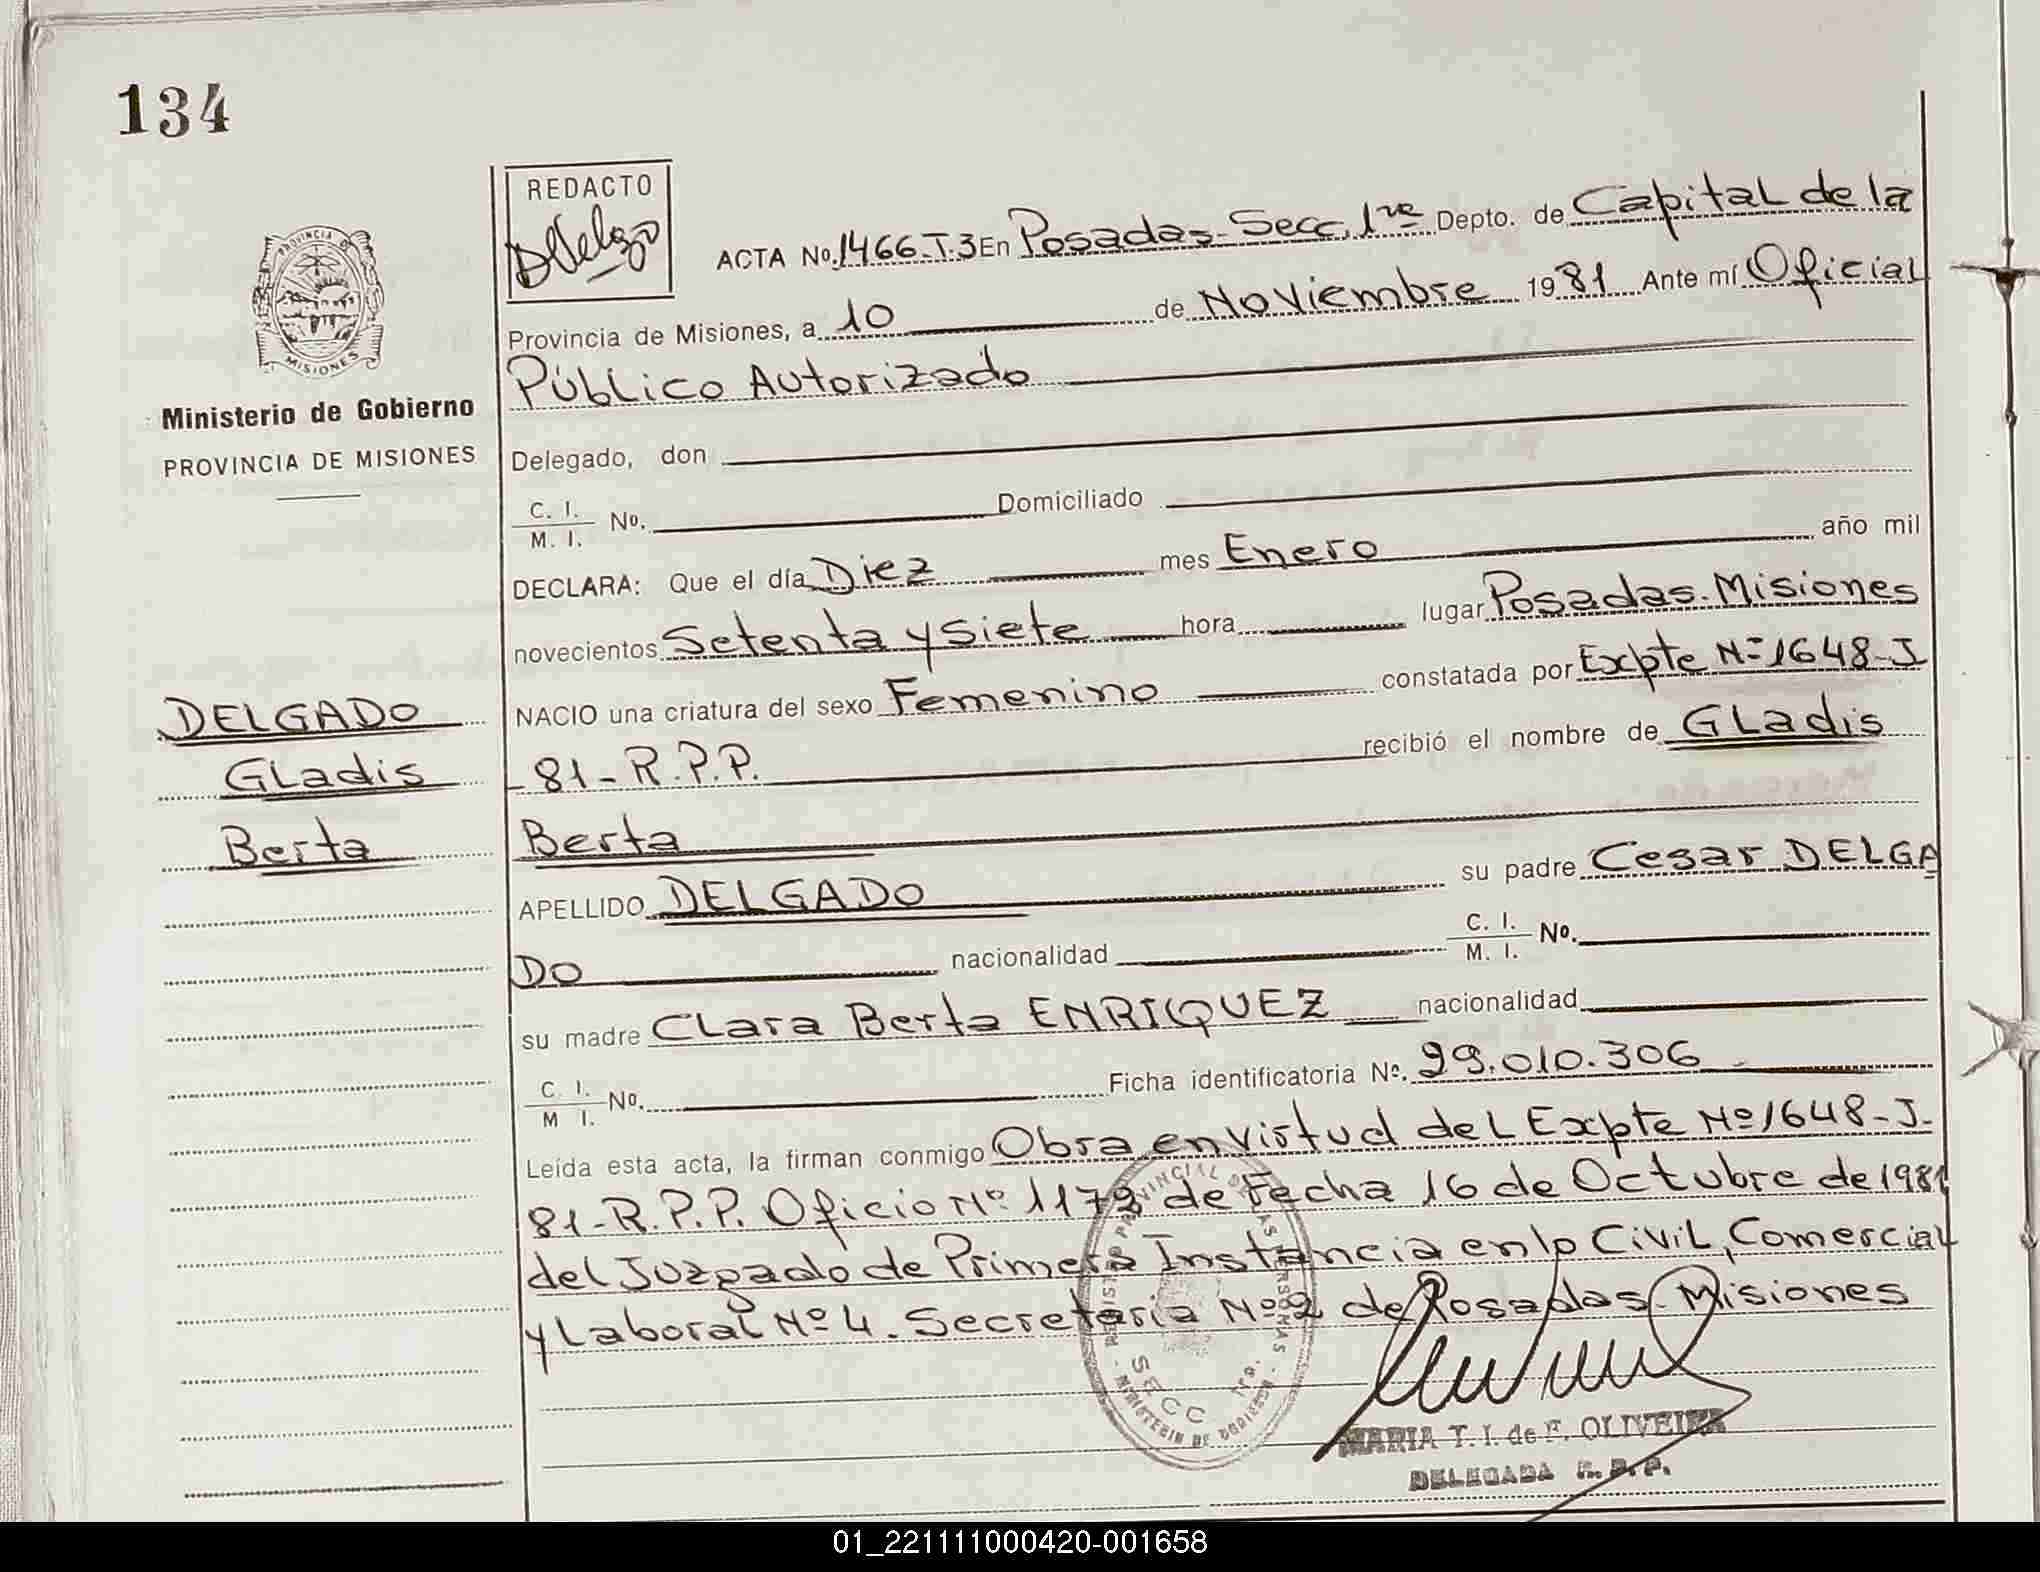 134
REDACTO
Delgado
ACTA No. 1466-T.3 En Posadas-Secc. 1ra Depto. de Capital de la
Provincia de Misiones, a 10 de Noviembre 1981 Ante mí Oficial
Público Autorizado
PROVINCIA DE
MISIONES
Ministerio de Gobierno
PROVINCIA DE MISIONES
Delegado, don
C. I.
M. I. No. Domiciliado
DECLARA: Que el día Diez mes Enero año mil
novecientos Setenta y Siete hora lugar Posadas. Misiones
NACIO una criatura del sexo Femenino constatada por Expte Nº 1648-J
-81-R.P.P. recibió el nombre de Gladis
Berta
DELGADO
Gladis
Berta
APELLIDO DELGADO su padre Cesar DELGA
DO nacionalidad C. I.
M. I. No.
su madre Clara Berta ENRIQUEZ nacionalidad
C. I.
M I. No. Ficha identificatoria No. 29.010.306
Leída esta acta, la firman conmigo Obra en virtud del Expte Nº 1648-J-
81-R.P.P. Oficio Nº 1172 de Fecha 16 de Octubre de 1981
del Juzgado de Primera Instancia en lo Civil, Comercial
y Laboral Nº 4. Secretaria Nº 2 de Posadas-Misiones
REGISTRO PROVINCIAL DE LAS PERSONAS - MINISTERIO DE GOBIERNO -
SECC 1ra.
MARIA T. I. de F. OLIVEIRA
DELEGADA R. P. P.
01_221111000420-001658